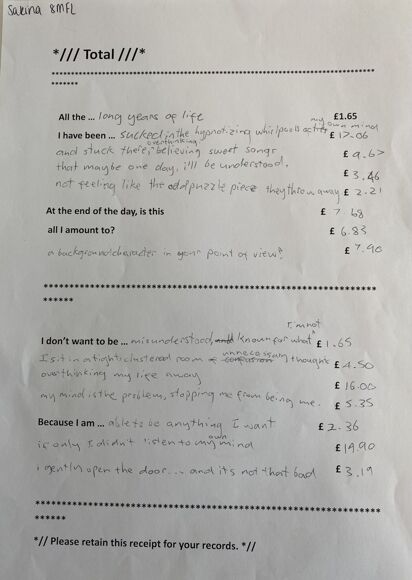 Sakina 8MFL
*/// Total ///*
************************************************************************
*******
All the ... long years of life £1.65
my own mind
I have been ... sucked in the hypnotizing whirlpools £ 17.06
overthinking
and stuck there, believing sweet songs £ 9.67
that maybe one day, i'll be understood, £ 3.46
not feeling like the odd puzzle piece they throw away £ 2.21
At the end of the day, is this £ 7.68
all I amount to? £ 6.83
a background character in your point of view? £ 7.90
************************************************************************
******
I'm not
I don't want to be ... misunderstood, and known for what £1.65
unnecessary
I sit in a tight clustered room of confusion thoughts £4.50
overthinking my life away £ 16.00
my mind is the problem, stopping me from being me. £ 5.35
Because I am ... able to be anything I want £ 2.36
own
is only I didn't listen to my mind £19.90
i gently open the door.... and it's not that bad £ 3.19
************************************************************************
******
*// Please retain this receipt for your records. *//